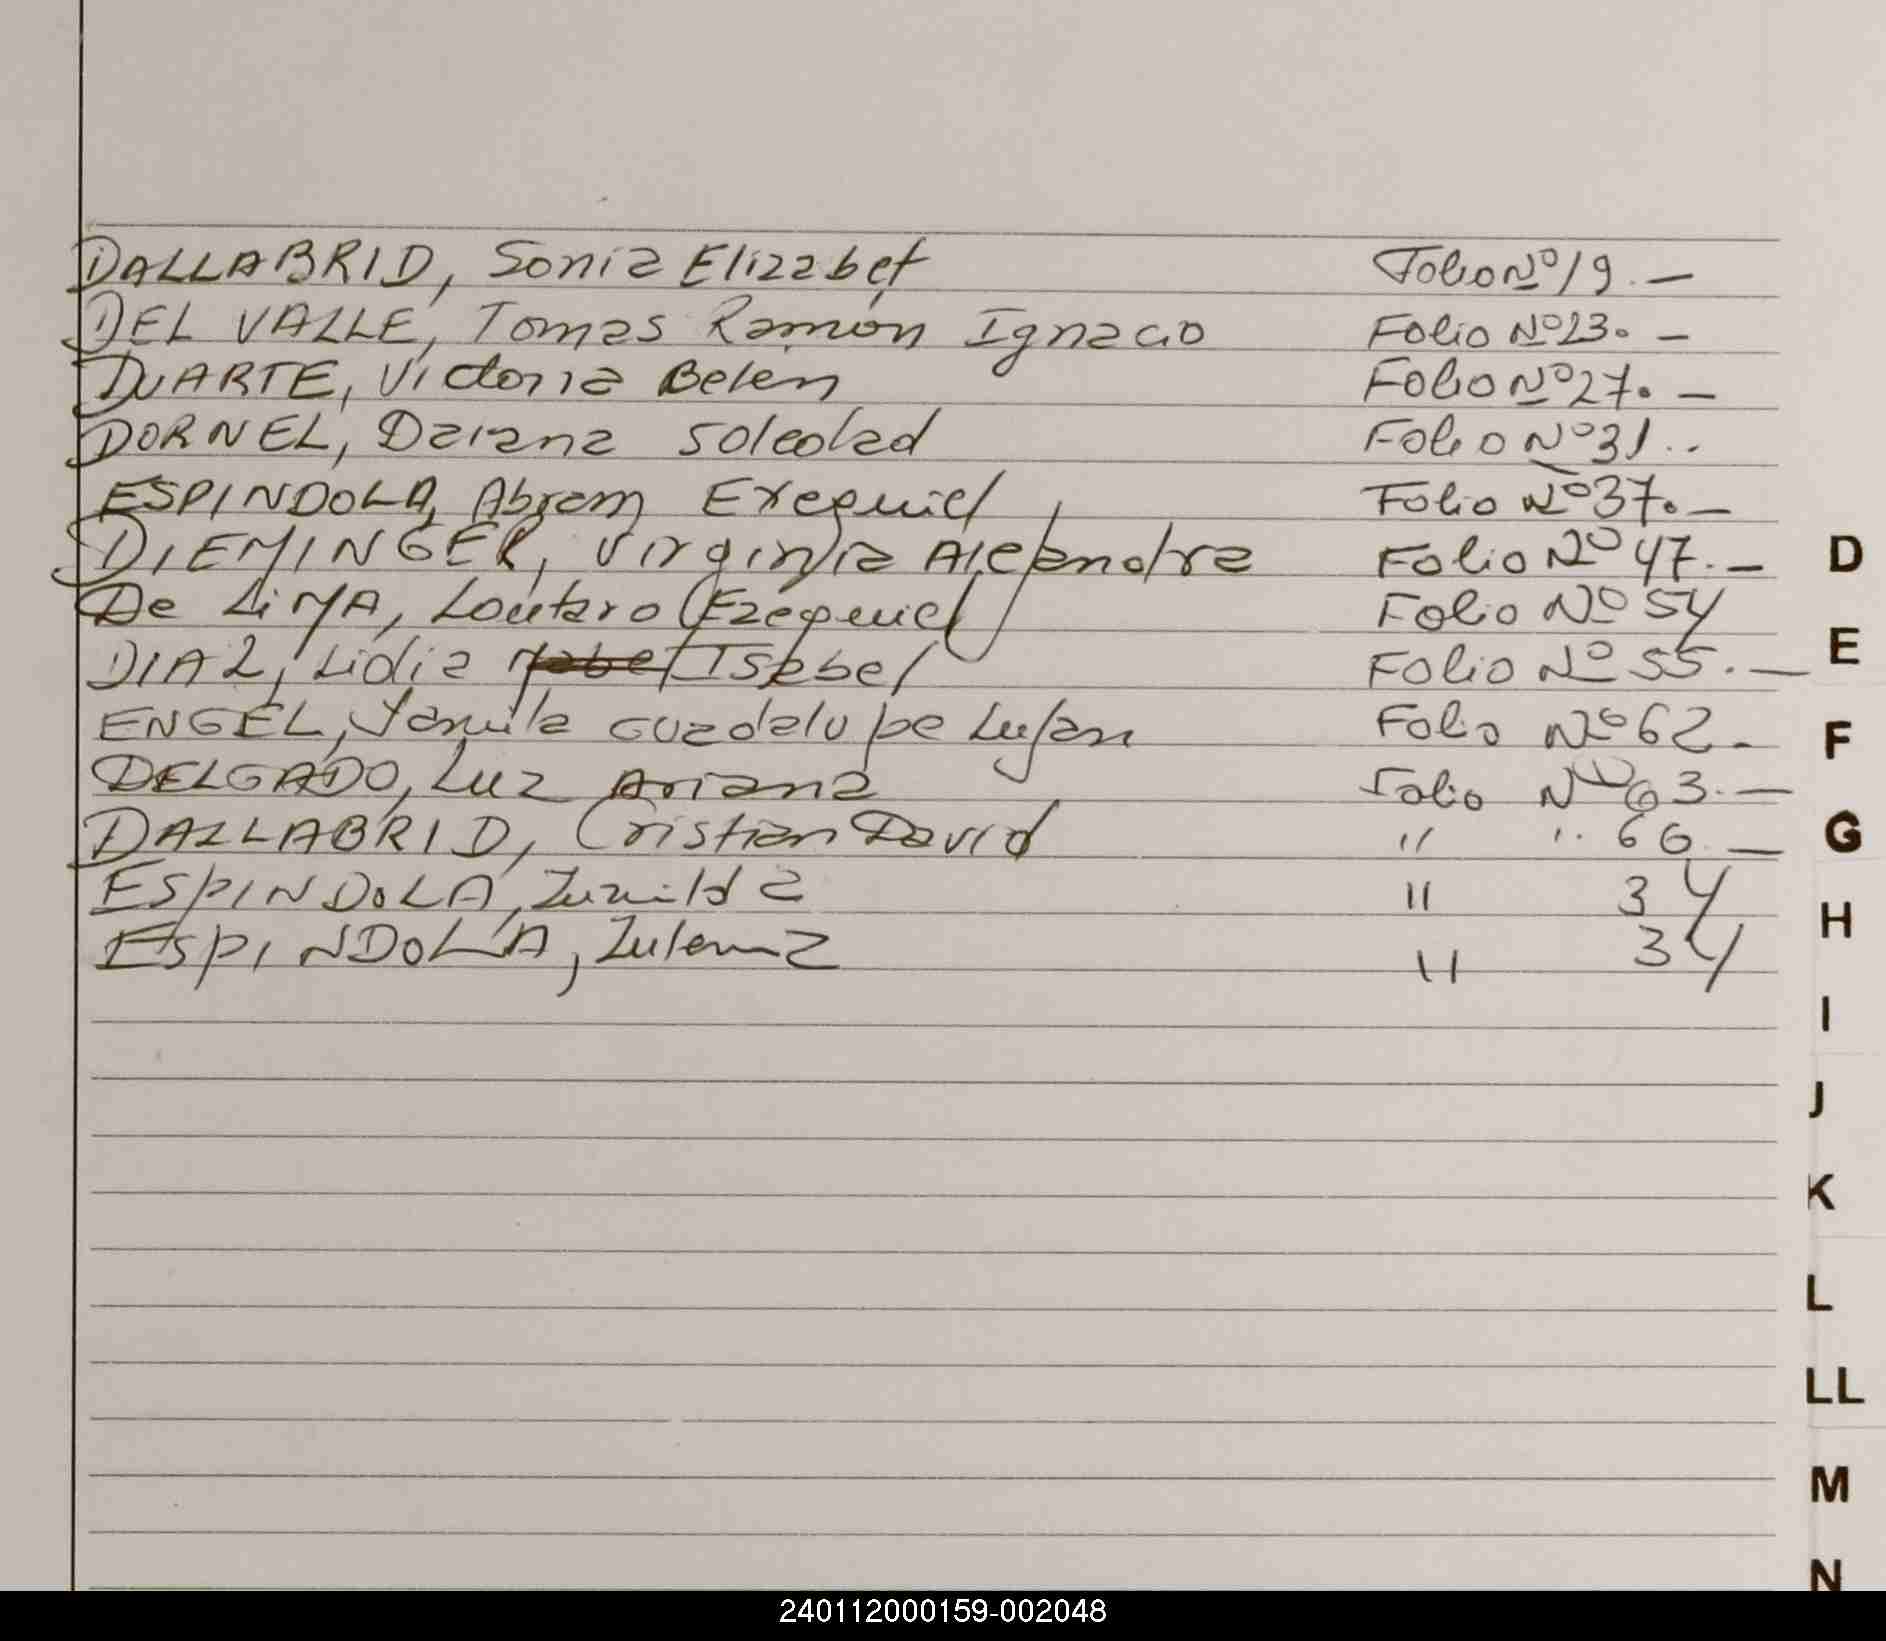 DALLABRID, Sonia Elizabet Folio Nº 19.—
DEL VALLE, Tomas Ramón Ignacio Folio Nº 23.—
DUARTE, Victoria Belen Folio Nº 27.—
DORNEL, Daiana Soledad Folio Nº 31..
ESPINDOLA, Abram Exequiel Folio Nº 37.—
DIEMINGER, Virginia Alejandra Folio Nº 47.—
De LiMA, Loutaro Ezequiel Folio Nº 54
DIAZ, Lidia Isabel Folio Nº 55.—
ENGEL, Yamila Guadalupe Lujan Folio Nº 62.-
DELGADO, Luz Ariana Folio Nº 63.—
DALLABRID, Cristian David " " 66.—
ESPINDOLA, Zunilda " 34
ESPINDOLA, Zulema " 34
D
E
F
G
H
I
J
K
L
LL
M
N
240112000159-002048